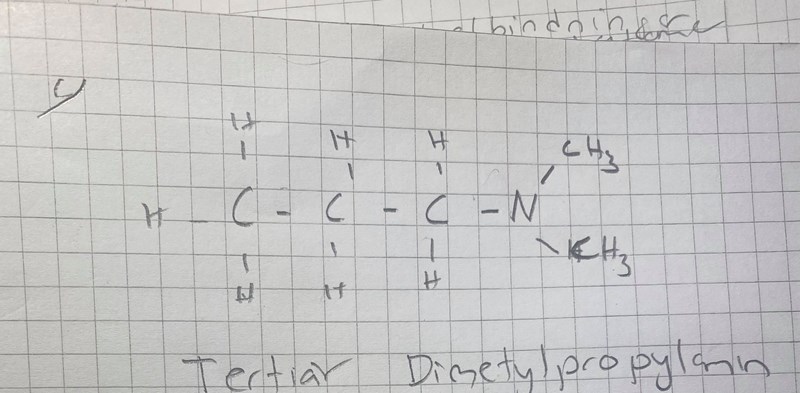 bindningar
c)
H H H CH3
H - C - C - C - N
H H H CH3
Tertiär Dimetylpropylamin